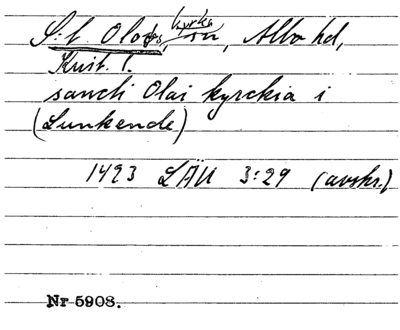 S:t Olofs kyrka, Albo hd,
Krist. l.
sancti Olai kyrckia i
(Lunkende)
1493 LÄU 3:29 (avskr.)
Nr 5908.